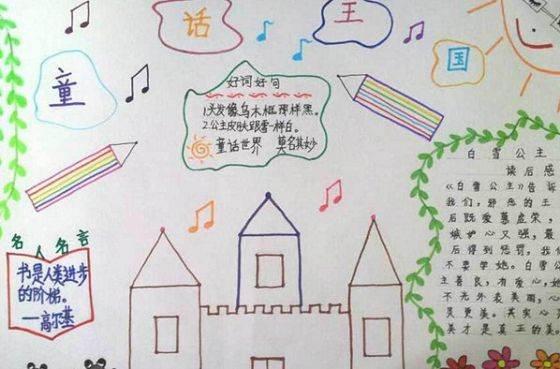 童话王国
好词好句
1.头发像乌木框那样黑。
2.公主皮肤跟雪一样白。
童话世界 莫名其妙
名人名言
书是人类进步
的阶梯。
——高尔基
白雪公主
读后感
《白雪公主》告诉
我们，邪恶的王
后既爱慕虚荣，
嫉妒心又强，最
后得到惩罚，我们
不要学她。白雪公
主善良，有爱心，她
不光外表美丽，心
灵更美。其实心灵
美才是真正的美。